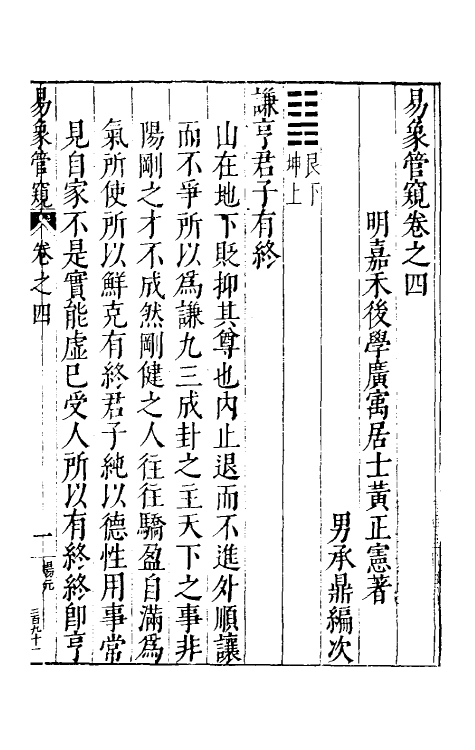 易象管窺卷之四
明嘉禾後學廣寓居士黃正憲著
男承鼎編次
艮下
坤上
謙亨君子有終
山在地下貶抑其尊也內止退而不進外順讓
而不爭所以爲謙九三成卦之主天下之事非
陽剛之才不成然剛健之人往往驕盈自滿爲
氣所使所以鮮克有終君子純以德性用事常
見自家不是實能虛已受人所以有終終卽亨
易象管窺
卷之四
一
楊元
二百九十一